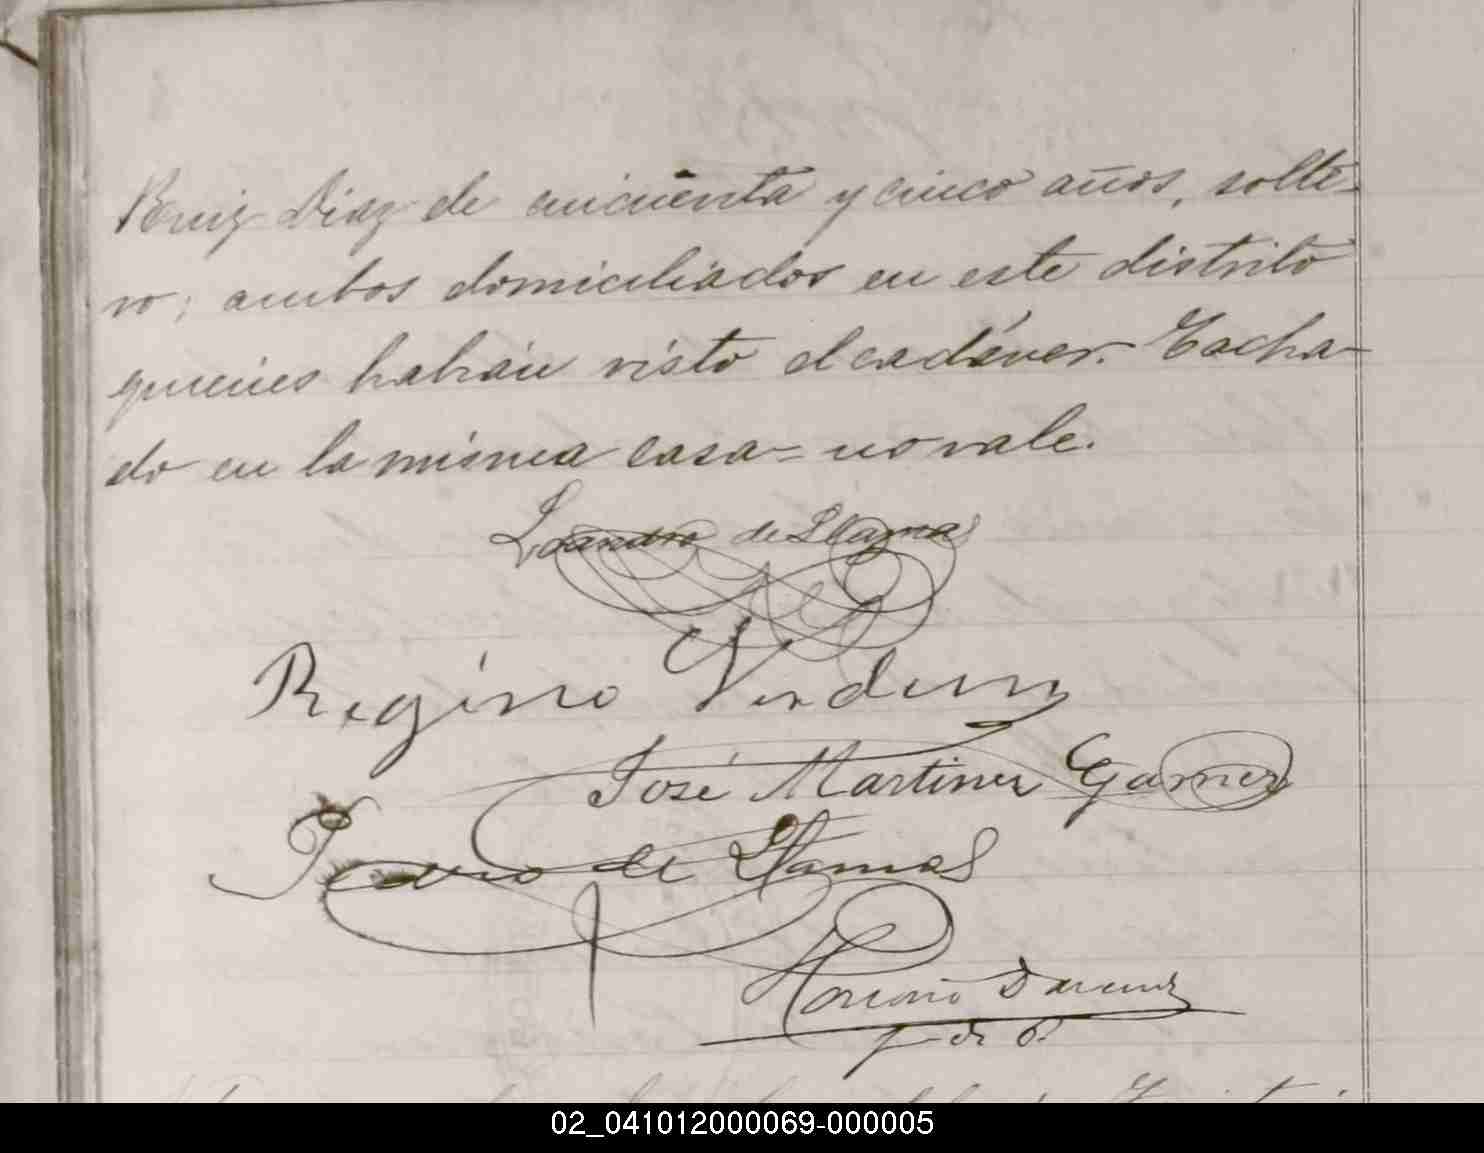 Ruiz Diaz de cincuenta y cinco años, solte-
ro; ambos domiciliados en este distrito
quienes habian visto el cadáver. Tacha-
do en la misma casa = no vale.
Leandro de Llamas
Regino Verdun
José Martinez Gamez
Pedro de Llamas
02_041012000069-000005